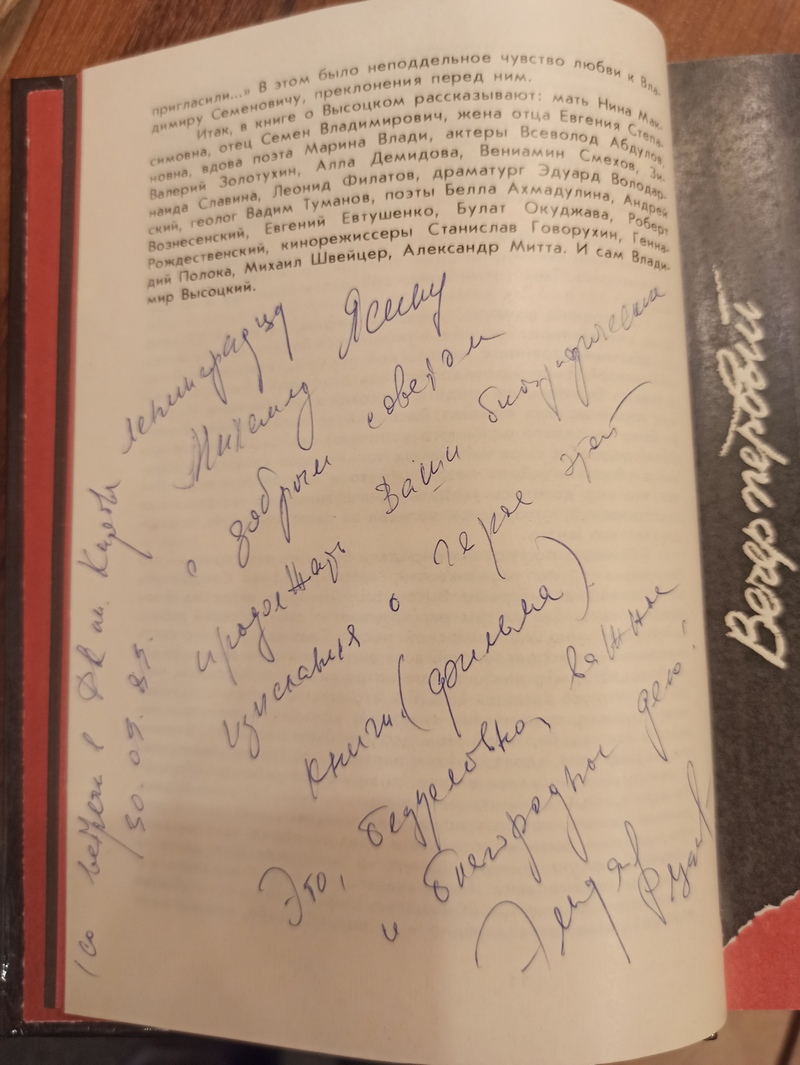 пригласили...» В этом было неподдельное чувство любви к Вла-
димиру Семеновичу, преклонения перед ним.
Итак, в книге о Высоцком рассказывают: мать Нина Мак-
симовна, отец Семен Владимирович, жена отца Евгения Степа-
новна, вдова поэта Марина Влади, актеры Всеволод Абдулов,
Валерий Золотухин, Алла Демидова, Вениамин Смехов, Зи-
наида Славина, Леонид Филатов, драматург Эдуард Володар-
ский, геолог Вадим Туманов, поэты Белла Ахмадулина, Андрей
Вознесенский, Евгений Евтушенко, Булат Окуджава, Роберт
Рождественский, кинорежиссеры Станислав Говорухин, Генна-
дий Полока, Михаил Швейцер, Александр Митта. И сам Влади-
мир Высоцкий.
ленинградцу
Михаилу Ясину
с добрым советом
продолжать Ваши биографические
изыскания о герое этой
книги (фильма)
Это, безусловно, важное
и благородное дело!
Эльдар
Рязан
(со встречи в ДК им. Кирова
30.09.89.
Вечер первый